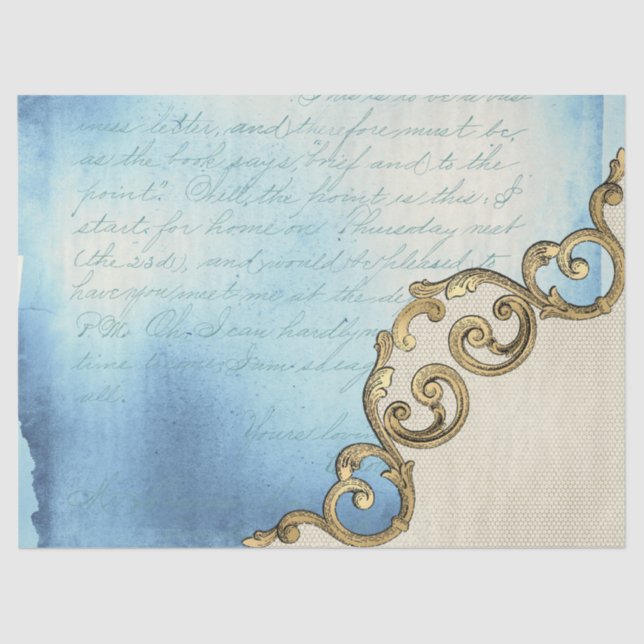 This is to be a bus
iness letter, and therefore must be,
as the book says, "brief and to the
point". Well, the point is this: I
start for home on Thursday next
(the 23d), and will be pleased to
have you meet me at the de
P.M. Oh, I can hardly
time to come, I am so eag
all.
Yours lovin